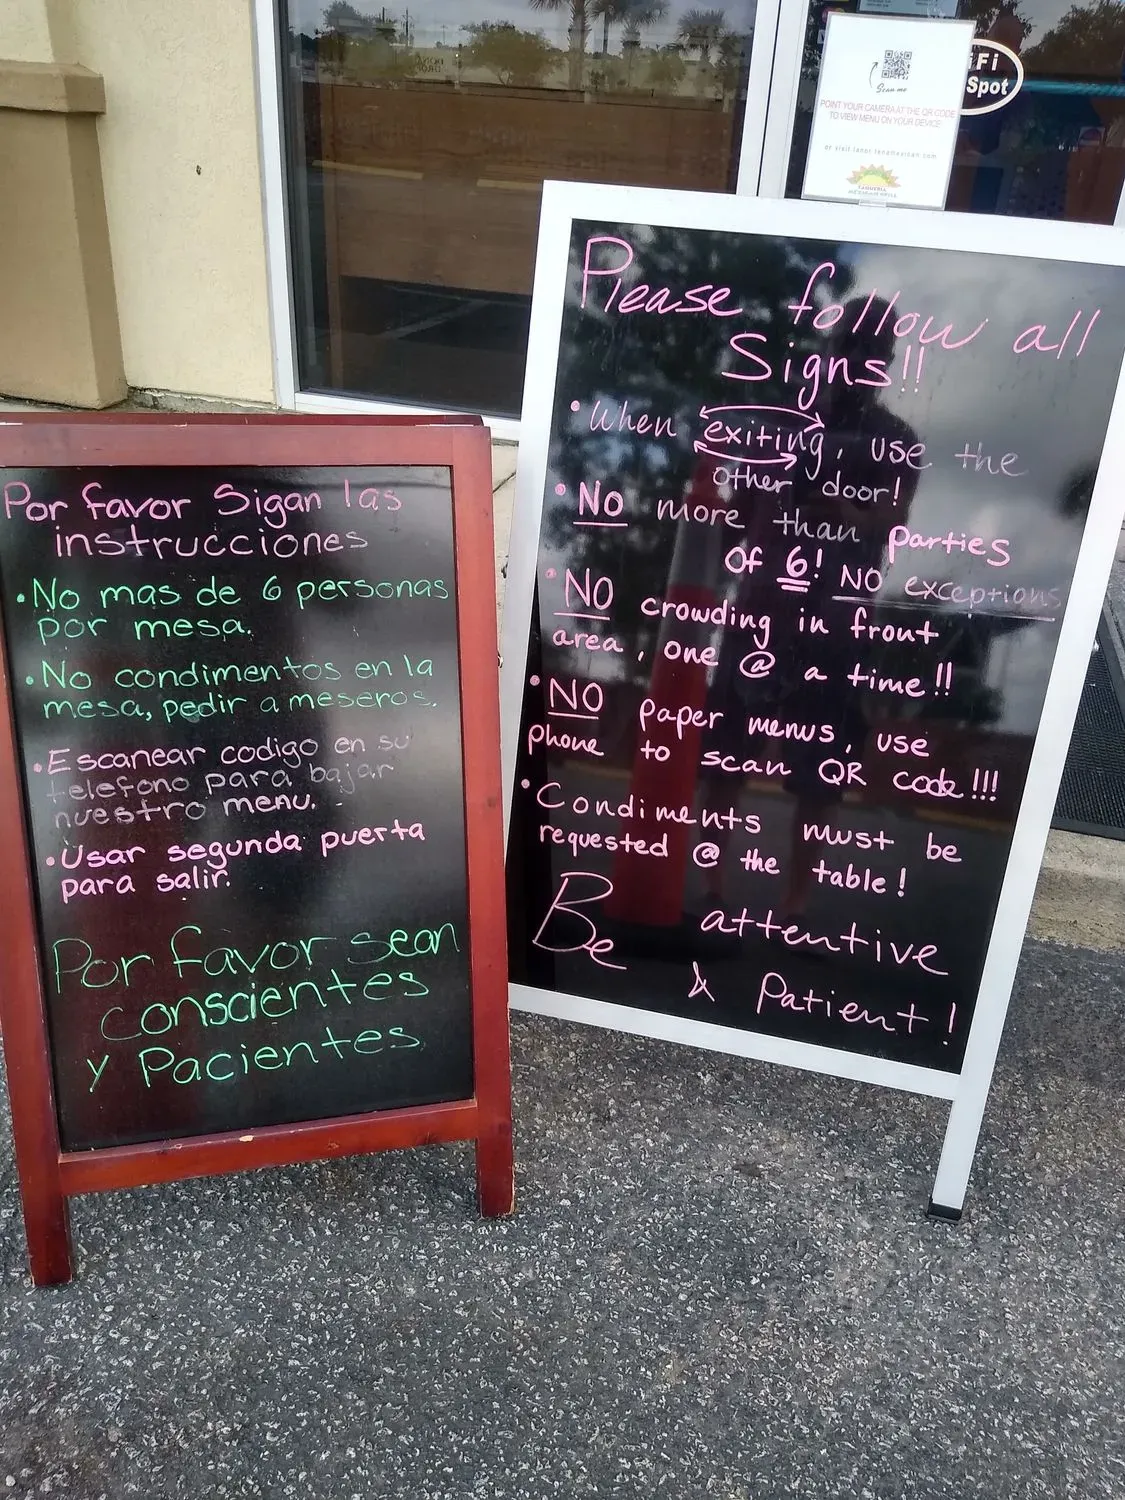 Por favor Sigan las
instrucciones
• No mas de 6 personas
por mesa.
• No condimentos en la
mesa, pedir a meseros.
• Escanear codigo en su
telefono para bajar
nuestro menu.
• Usar segunda puerta
para salir.
Por favor sean
conscientes
y Pacientes
Scan me
POINT YOUR CAMERA AT THE QR CODE
TO VIEW MENU ON YOUR DEVICE
or visit
Fi
Spot
Please follow all
Signs!!
• When exiting, use the
other door!
• NO more than parties
of 6! NO exceptions
• NO crowding in front
area, one @ a time!!
• NO paper menus, use
phone to scan QR code!!!
• Condiments must be
requested @ the table!
Be attentive
& Patient!